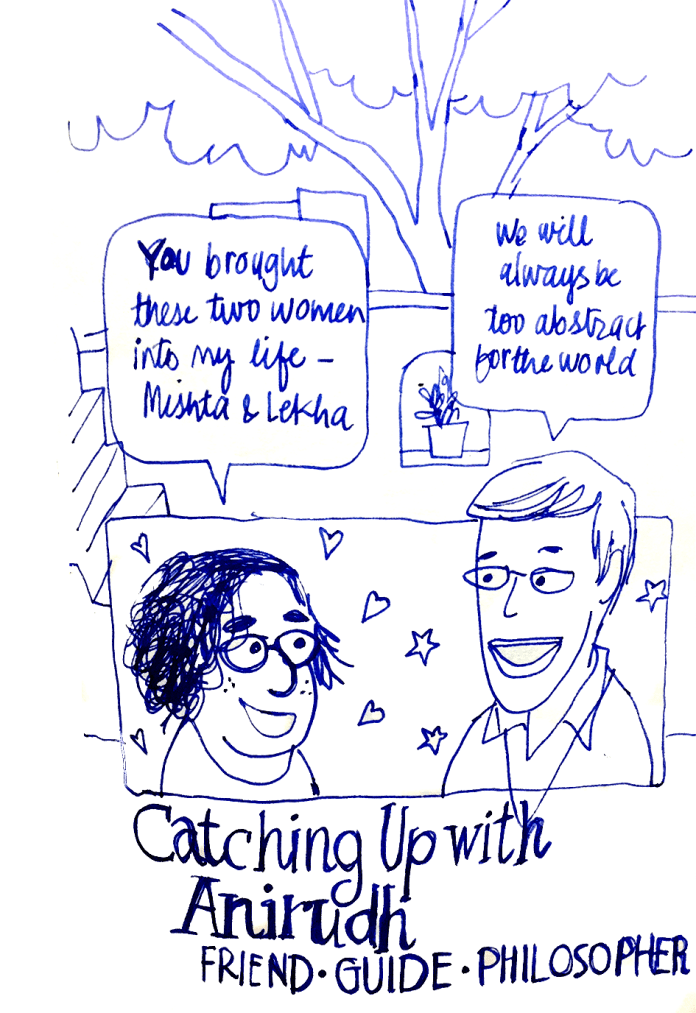 You brought
these two women
into my life -
Mishta & Lekha
We will
always be
too abstract
for the world
Catching Up with
Anirudh
FRIEND · GUIDE · PHILOSOPHER